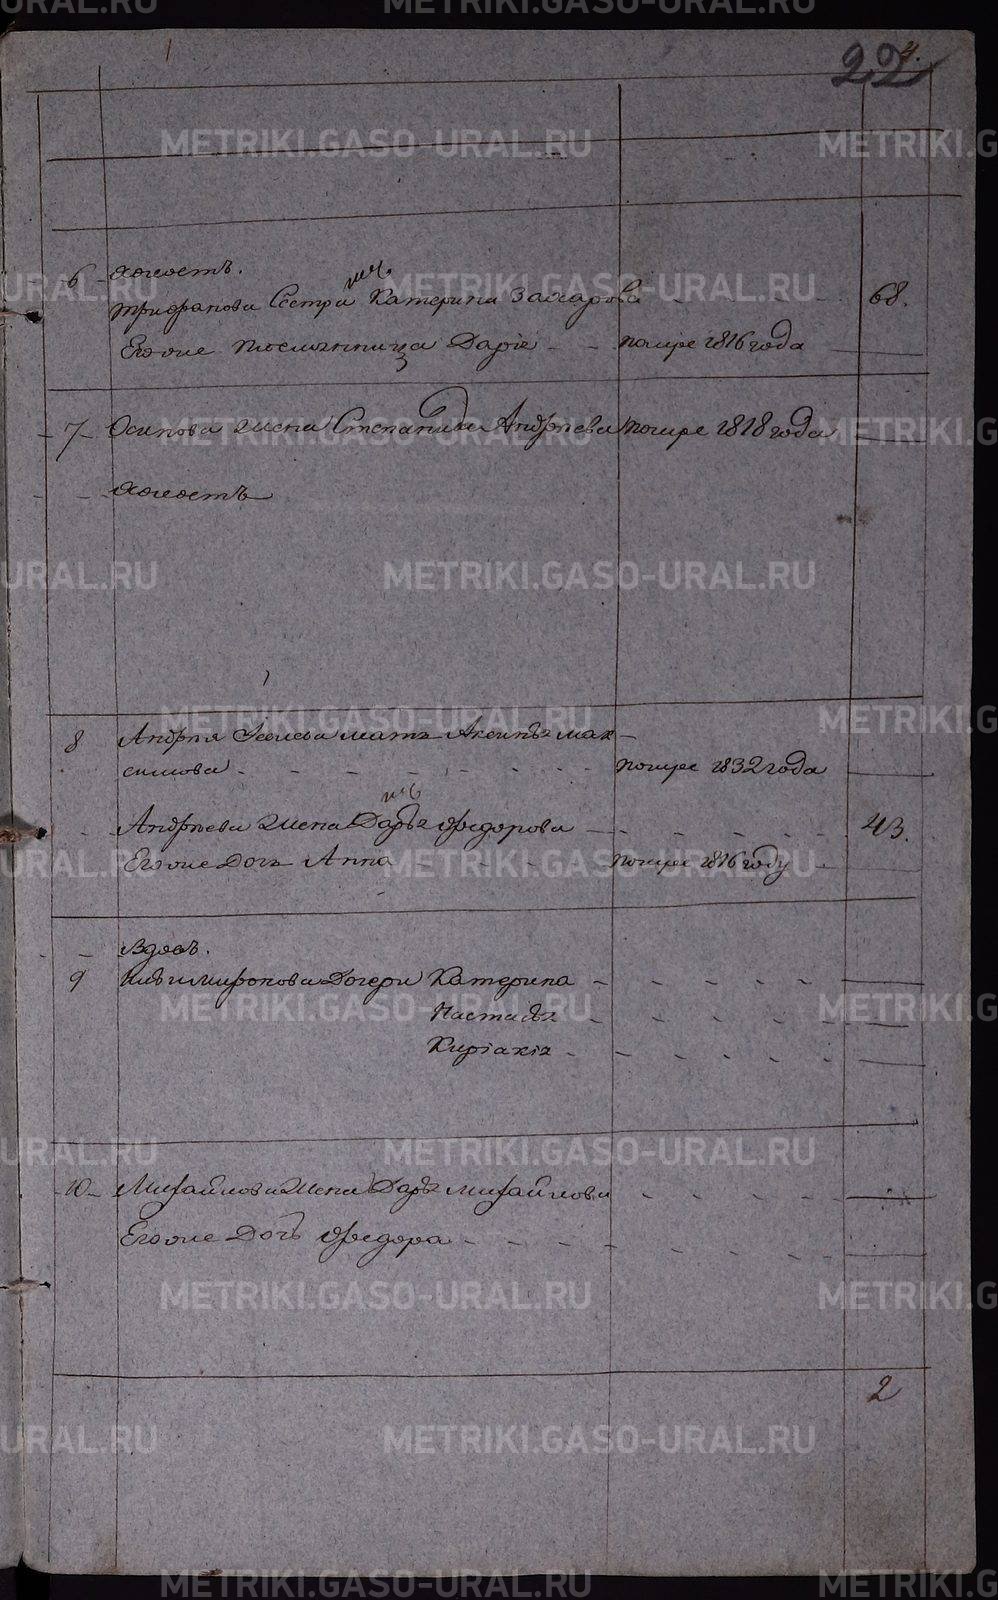 22
6 Холостъ.
Трифанова Сестра Катерина Захарова 68.
Егоже Племянница Дарiе помре 1816 года
7 Осипова жена Степанида Андреева помре 1818 года
Холостъ
8 Андрея мать Аксинья Мак-
симова помре 1832 года
Андреева жена Дарья Федорова 43.
Егоже Дочь Анна помре 1816 году
Вдовъ.
9 Дочери Катерина
Настасья
Кирiакiя
10 Михайлова Жена Дарья Михайлова
Егоже Дочь Федора
2
METRIKI.GASO-URAL.RU